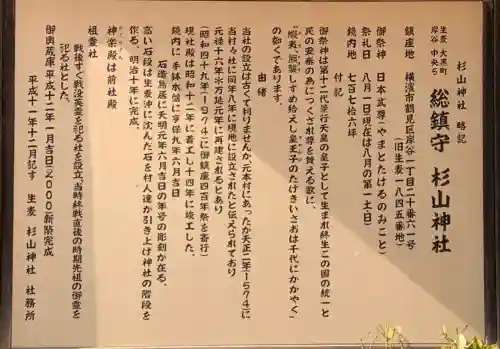 杉山神社 略記
生麦 大黒町
岸谷 中央5
総鎮守 杉山神社
鎮座地 横濱市鶴見区岸谷一丁目二十番六一号
(旧生麦一八四五番地)
御祭神 日本武尊(やまとたけるのみこと)
祭礼日 八月一日(現在は八月の第一土日)
鏡内地 七百七拾六坪
付記
御祭神は第十二代景行天皇の皇子として生まれ終生この国の統一と
民の安泰の為につくされ尊を賛える歌に、
「蝦夷、熊襲しずめ給えし皇子のたけきいさおは千代にかかやく」
の如くであります。
由緒
当社の設立は古くて判りませんが、元本村にあったが天正二年(1574)に
当村々社に同年八年に現地に設立されたと伝えられており
元禄十六年氷万延元年に再建されるとあり
(昭和四十九年(1974)に御鎮座四百年祭を斎行)
現社殿は昭和十二年に着工し十四年に竣工した、
鏡内に 手鉢水盤に享保九年六月吉日
石造鳥居に天明元年六月吉日の年号の彫刻が在る、
高い石段は生麦沖に沈んだ石を村人達が引き上げ神社の階段を
作る、明治十年に完成、
神楽殿は前社殿
祖霊社
戦後すぐ戦没英霊を祀る社を設立、当時終戦直後の時期先祖の御霊を
祀る社とした、
御輿蔵庫 平成十二年一月吉日(2000)新築完成
平成十一年十二月記す 生麦 杉山神社 社務所